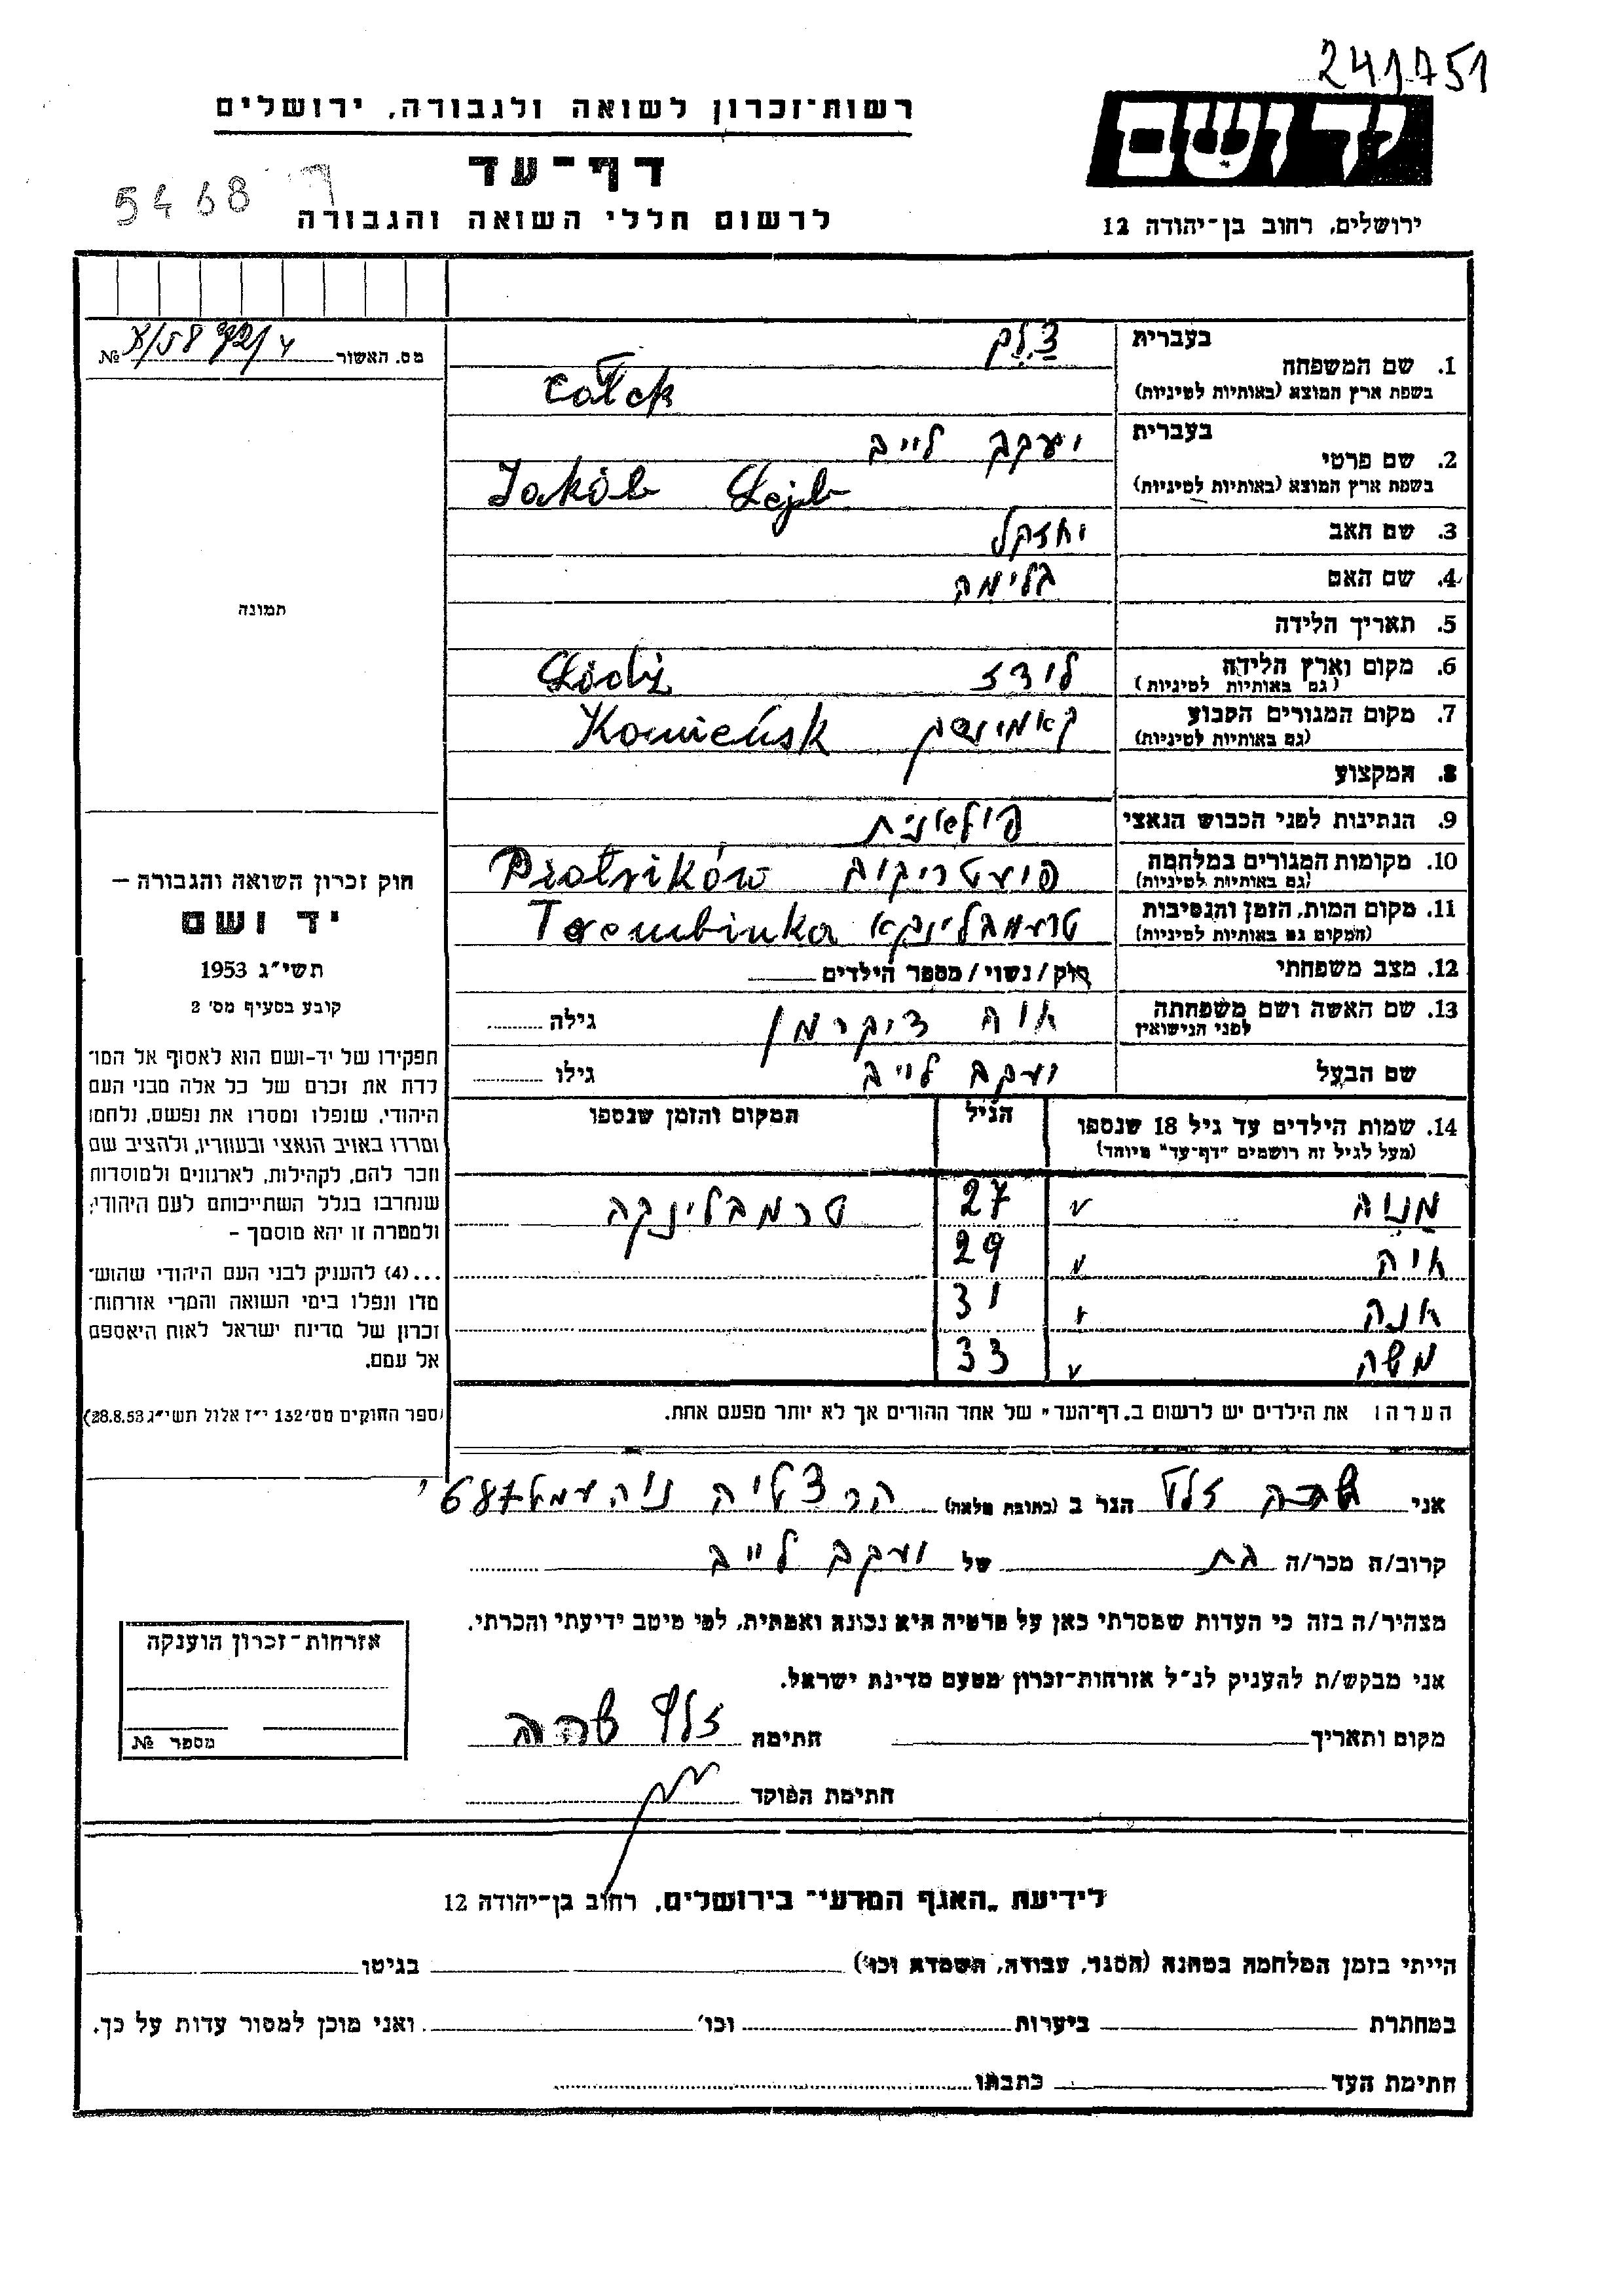 241751
יד ושם
רשות-זכרון לשואה ולגבורה, ירושלים
דף-עד
5468
לרשום חללי השואה והגבורה
ירושלים, רחוב בן-יהודה 12
מס. האשור № 
1. שם המשפחה
בעברית צלק
בשפת ארץ המוצא (באותיות לטיניות) Całek
2. שם פרטי
בעברית יעקב לייב
בשפת ארץ המוצא (באותיות לטיניות) Jakób Lejb
3. שם האב יחזקל
4. שם האם
5. תאריך הלידה
6. מקום וארץ הלידה (גם באותיות לטיניות) לודז Łódź
7. מקום המגורים הקבוע (גם באותיות לטיניות) Kamieńsk
8. המקצוע
9. הנתינות לפני הכבוש הנאצי פולאנית
10. מקומות המגורים במלחמה (גם באותיות לטיניות) פיוטריקוב Piotrików
11. מקום המות, הזמן והנסיבות (המקום גם באותיות לטיניות) טרעמבלינקא Tremblinka
12. מצב משפחתי רווק/נשוי/מספר הילדים
13. שם האשה ושם משפחתה לפני הנישואין גילה
שם הבעל יעקב לייב גילו
14. שמות הילדים עד גיל 18 שנספו הגיל המקום והזמן שנספו
(מעל לגיל זה רושמים "דף-עד" מיוחד)
מניה v 27 טרמבלינקה
איה v 29
אנה v 31
משה v 33
הערה: את הילדים יש לרשום ב„דף-העד" של אחד ההורים אך לא יותר מפעם אחת.
תמונה
חוק זכרון השואה והגבורה –
יד ושם
תשי"ג 1953
קובע בסעיף מס' 2
תפקידו של יד-ושם הוא לאסוף אל המו־
לדת את זכרם של כל אלה מבני העם
היהודי, שנפלו ומסרו את נפשם, נלחמו
ומרדו באויב הנאצי ובעוזריו, ולהציב שם
וזכר להם, לקהילות, לארגונים ולמוסדות
שנחרבו בגלל השתייכותם לעם היהודי;
ולמטרה זו יהא מוסמך –
...(4) להעניק לבני העם היהודי שהוש־
מדו ונפלו בימי השואה והמרי אזרחות־
זכרון של מדינת ישראל לאות היאספם
אל עמם.
(ספר החוקים מס' 132 י"ז אלול תשי"ג 28.8.53)
אני הגר ב (כתובת מלאה) הרצליה
קרוב/ה מכר/ה בת של יעקב לייב
מצהיר/ה בזה כי העדות שמסרתי כאן על פרטיה היא נכונה ואמתית, לפי מיטב ידיעתי והכרתי.
אני מבקש/ת להעניק לנ"ל אזרחות-זכרון מטעם מדינת ישראל.
מקום ותאריך חתימה
חתימת הפוקד
אזרחות-זכרון הוענקה
מספר №
לידיעת „האגף המדעי" בירושלים, רחוב בן-יהודה 12
הייתי בזמן המלחמה במחנה (הסגר, עבודה, השמדה וכו') בגיטו
במחתרת ביערות וכו' ואני מוכן למסור עדות על כך.
חתימת העד כתבתו